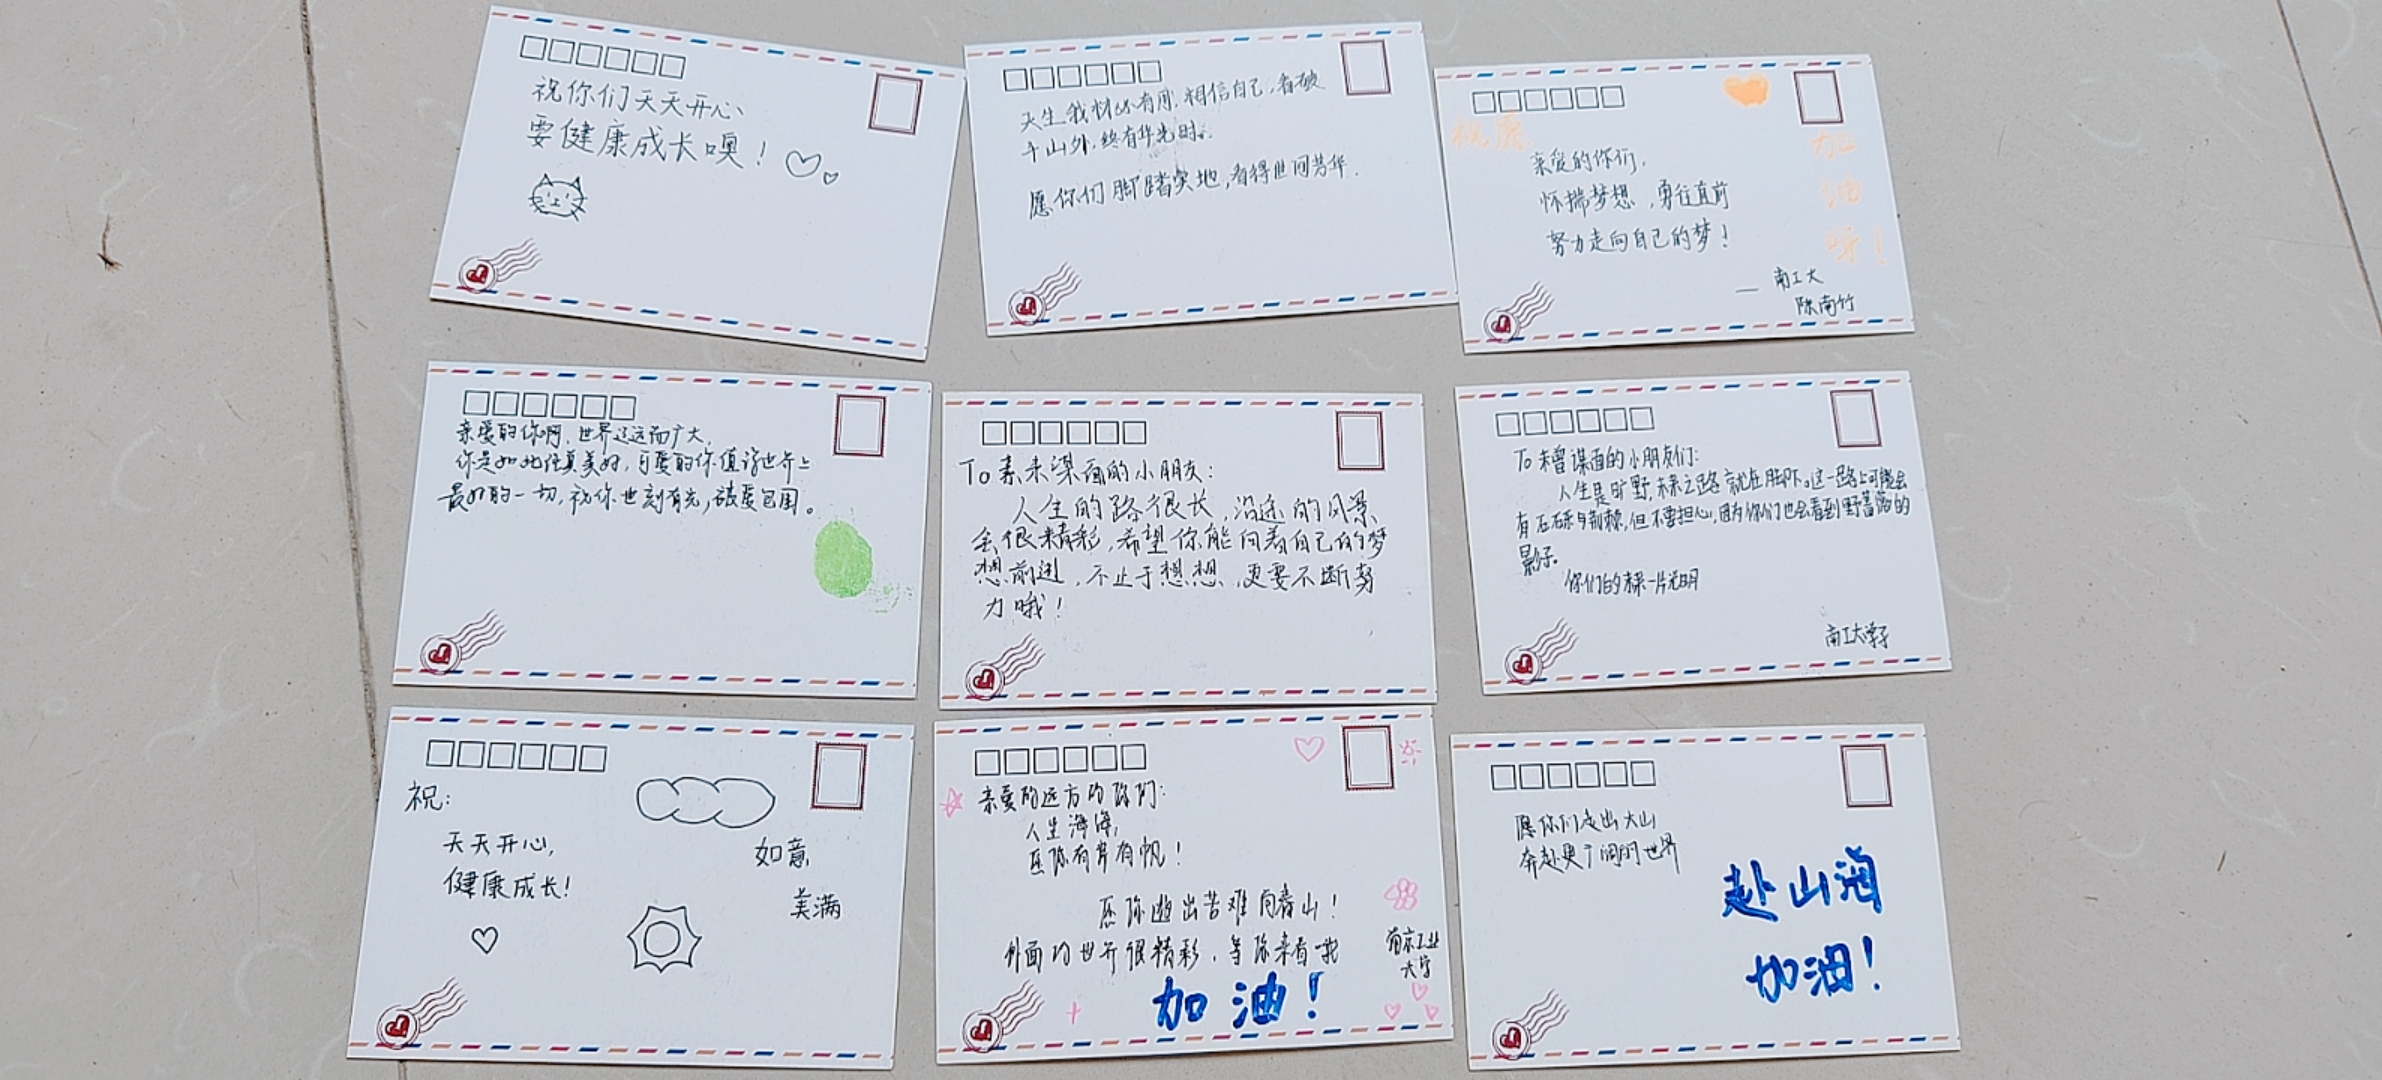 祝你们天天开心、
要健康成长噢！
天生我材必有用，相信自己，看破
千山外，终有华光时。
愿你们脚踏实地，看得世间芳华．
祝愿
加
油
呀！
亲爱的你们，
怀揣梦想，勇往直前
努力走向自己的梦！
— 南工大
陈南竹
亲爱的你啊，世界辽远而广大，
你是如此任真美好，可爱的你值得世界上
最好的一切，祝你世刻有光，被爱包围。
To 素未谋面的小朋友：
人生的路很长，沿途的风景
会很精彩，希望你能向着自己的梦
想前进，不止于想想，更要不断努
力哦！
To 未曾谋面的小朋友们：
人生是旷野，未来之路就在脚下。这一路上可能会
有石砾与荆棘，但不要担心，因为你们也会看到野蔷薇的
影子。
你们的未来一片光明
南工大学子
祝：
天天开心，
健康成长！
如意
美满
亲爱的远方的你们：
人生海海，
愿你有岸有帆！
愿你逊出苦难向春山！
外面的世界很精彩，等你来看一看
南京工业
大学
加油！
愿你们走出大山
奔赴更广阔的世界
赴山海
加油！